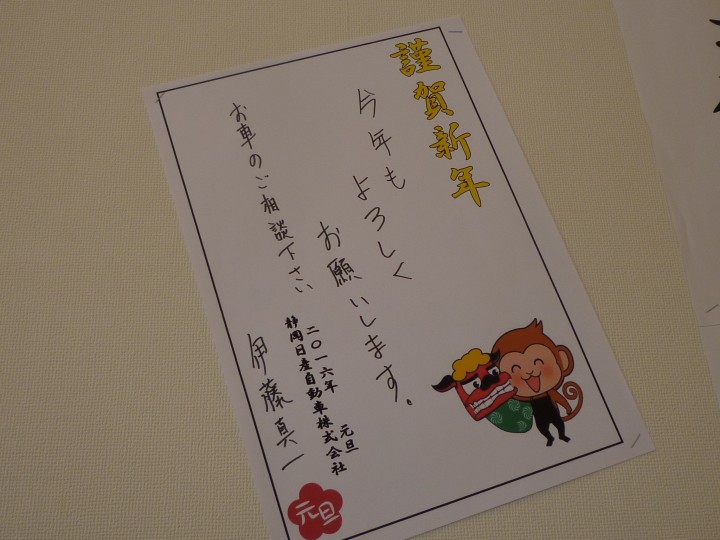 謹賀新年
今年も
よろしく
お願いします。
お車のご相談下さい
二〇一六年 元旦
静岡日産自動車株式会社
伊藤真一
元旦